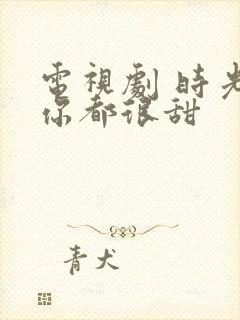 電視劇 時光
你都很甜
青犬